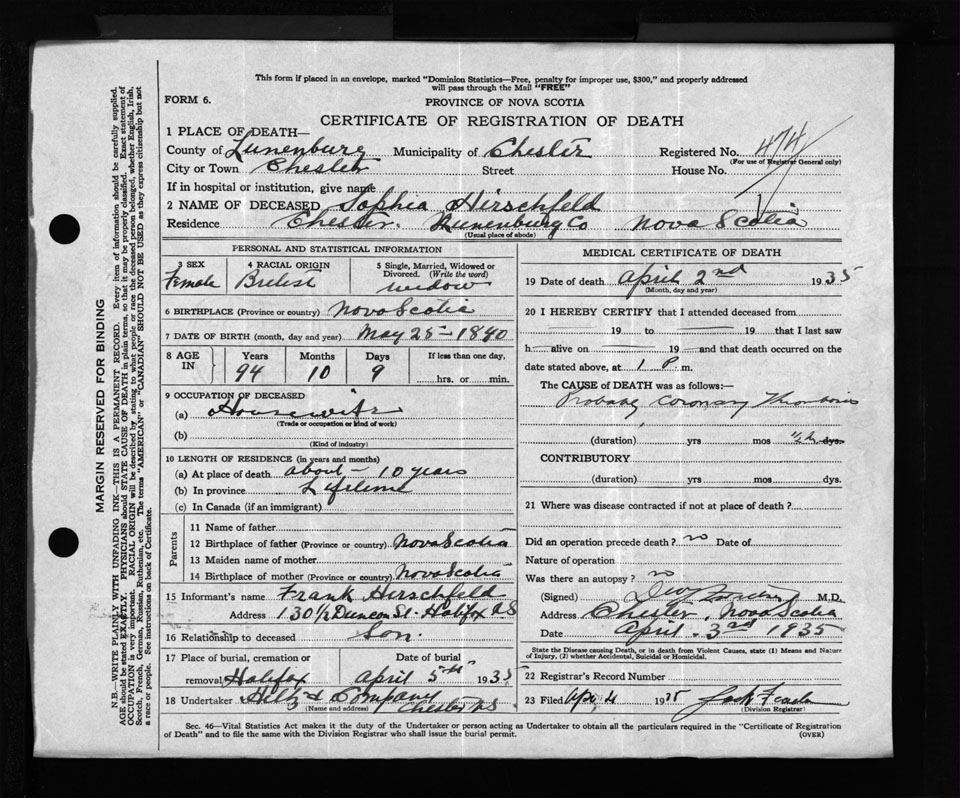 This form if placed in an envelope, marked "Dominion Statistics—Free, penalty for improper use, $300," and properly addressed
will pass through the Mail "FREE"
FORM 6.
PROVINCE OF NOVA SCOTIA
CERTIFICATE OF REGISTRATION OF DEATH
1 PLACE OF DEATH—
County of Lunenburg Municipality of Chester Registered No. 474
(For use of Registrar General only)
City or Town Chester Street House No.
If in hospital or institution, give name
2 NAME OF DECEASED Sophia Hirschfeld
Residence Chester. Lunenburg Co Nova Scotia
(Usual place of abode)
PERSONAL AND STATISTICAL INFORMATION
3 SEX 4 RACIAL ORIGIN 5 Single, Married, Widowed or
Divorced. (Write the word)
Female British widow
6 BIRTHPLACE (Province or country) Nova Scotia
7 DATE OF BIRTH (month, day and year) May 25 - 1840
8 AGE IN Years Months Days If less than one day,
94 10 9 hrs. or min.
9 OCCUPATION OF DECEASED
(a) Housewife
(Trade or occupation or kind of work)
(b)
(Kind of industry)
10 LENGTH OF RESIDENCE (in years and months)
(a) At place of death about - 10 years
(b) In province Lifetime
(c) In Canada (if an immigrant)
Parents
11 Name of father
12 Birthplace of father (Province or country) Nova Scotia
13 Maiden name of mother
14 Birthplace of mother (Province or country) Nova Scotia
15 Informant's name Frank Hirschfeld
Address 130 1/2 Duncan St. Halifax N S
16 Relationship to deceased Son.
17 Place of burial, cremation or Date of burial
removal Halifax April 5th 1935
18 Undertaker & Company
Chester N S
(Name and address)
MEDICAL CERTIFICATE OF DEATH
19 Date of death April 2nd 1935
(Month, day and year)
20 I HEREBY CERTIFY that I attended deceased from
19 to 19 that I last saw
h alive on 19 and that death occurred on the
date stated above, at 1 P. m.
The CAUSE of DEATH was as follows:—
Probably coronary Thrombosis
(duration) yrs mos ½ h dys.
CONTRIBUTORY
(duration) yrs. mos. dys.
21 Where was disease contracted if not at place of death?
Did an operation precede death? no Date of
Nature of operation
Was there an autopsy? no
(Signed) M.D.
Address Chester, Nova Scotia
Date April. 3rd 1935
State the Disease causing Death, or in death from Violent Causes, state (1) Means and Nature
of Injury, (2) whether Accidental, Suicidal or Homicidal.
22 Registrar's Record Number
23 Filed Apr. 4 1935
(Division Registrar)
Sec. 46—Vital Statistics Act makes it the duty of the Undertaker or person acting as Undertaker to obtain all the particulars required in the "Certificate of Registration
of Death" and to file the same with the Division Registrar who shall issue the burial permit. (OVER)
MARGIN RESERVED FOR BINDING
N.B.—WRITE PLAINLY WITH UNFADING INK—THIS IS A PERMANENT RECORD. Every item of information should be carefully supplied.
AGE should be stated EXACTLY. PHYSICIANS should STATE CAUSE OF DEATH in plain terms, so that it may be properly classified. Exact statement of
OCCUPATION is very important. RACIAL ORIGIN will be described by stating to what people or race the deceased person belonged, whether English, Irish,
Scotch, French, German, Russian, Ruthenian, etc. The terms "AMERICAN" or "CANADIAN" SHOULD NOT BE USED as they express citizenship but not
a race or people. See instructions on back of Certificate.